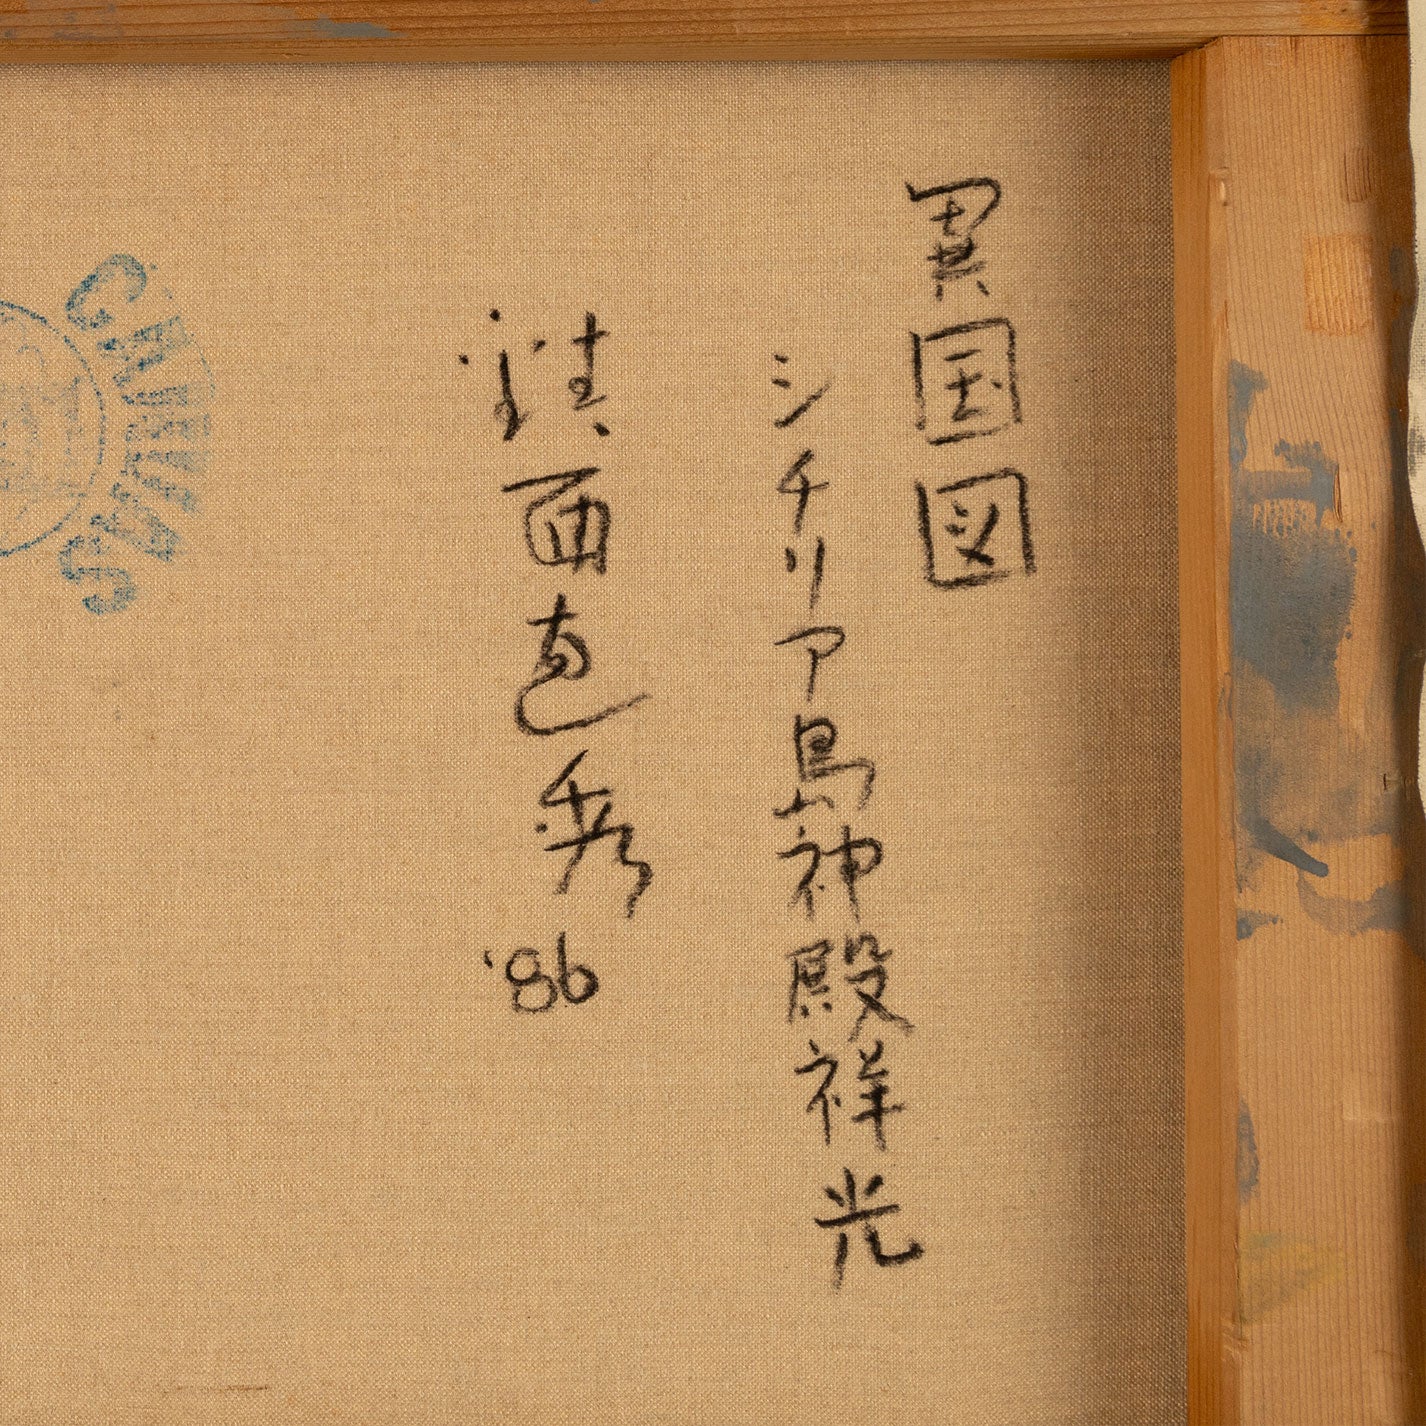 異国図
シチリア島神殿祥光
鎮西直秀 '86
CANVAS